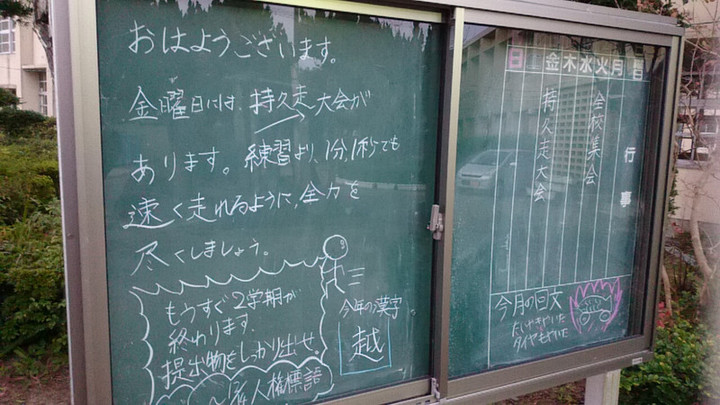 おはようございます。
金曜日には、持久走大会が
あります。練習より、1分、1秒でも
速く走れるように、全力を
尽くしましょう。
もうすぐ2学期が
終わります。
提出物をしっかり出せ
人権標語
今年の漢字
越
日土金木水火月曜
行事
全校集会
持久走大会
今月の回文